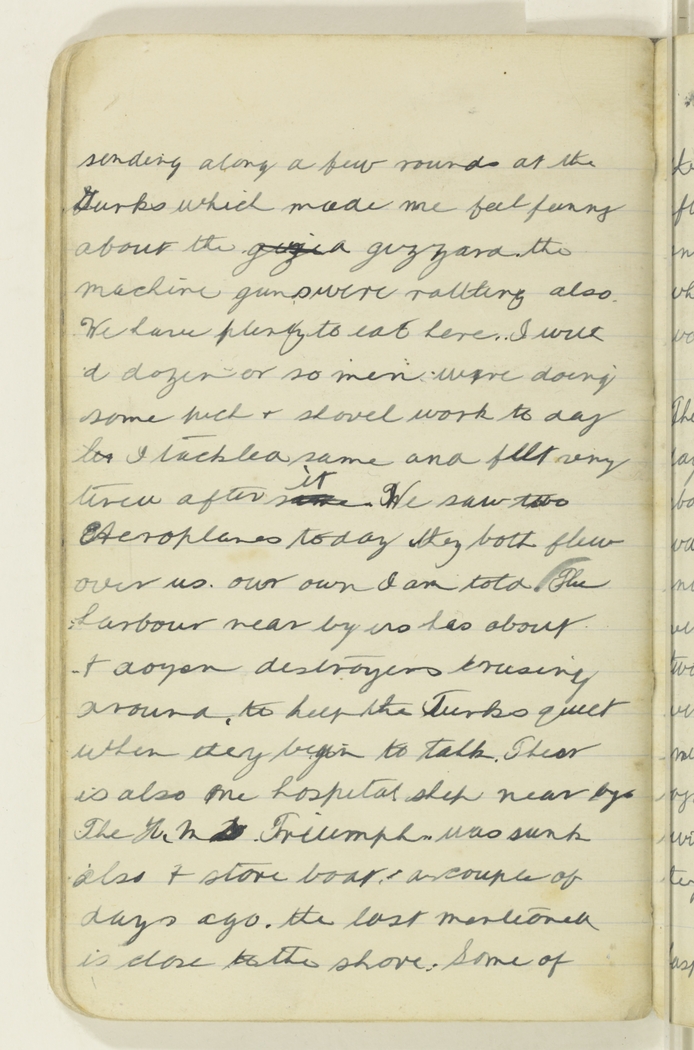 sending along a few rounds at the
Turks which made me feel funny
about the gizzard. the
machine guns were rattling also.
We have plenty to eat here. I with
a dozen or so men were doing
some pick + shovel work to day
I tackled same and felt very
tired after it. We saw two
Aeroplanes today they both flew
over us. our own I am told. The
harbour near by us has about
dozen destroyers crusing
around, to keep the Turks quiet
when they begin to talk. Ther
is also one hospital ship near by
The H.M.S. Triumph was sunk
also + store boat. a couple of
days ago. the last mentioned
is close to the shore. Some of